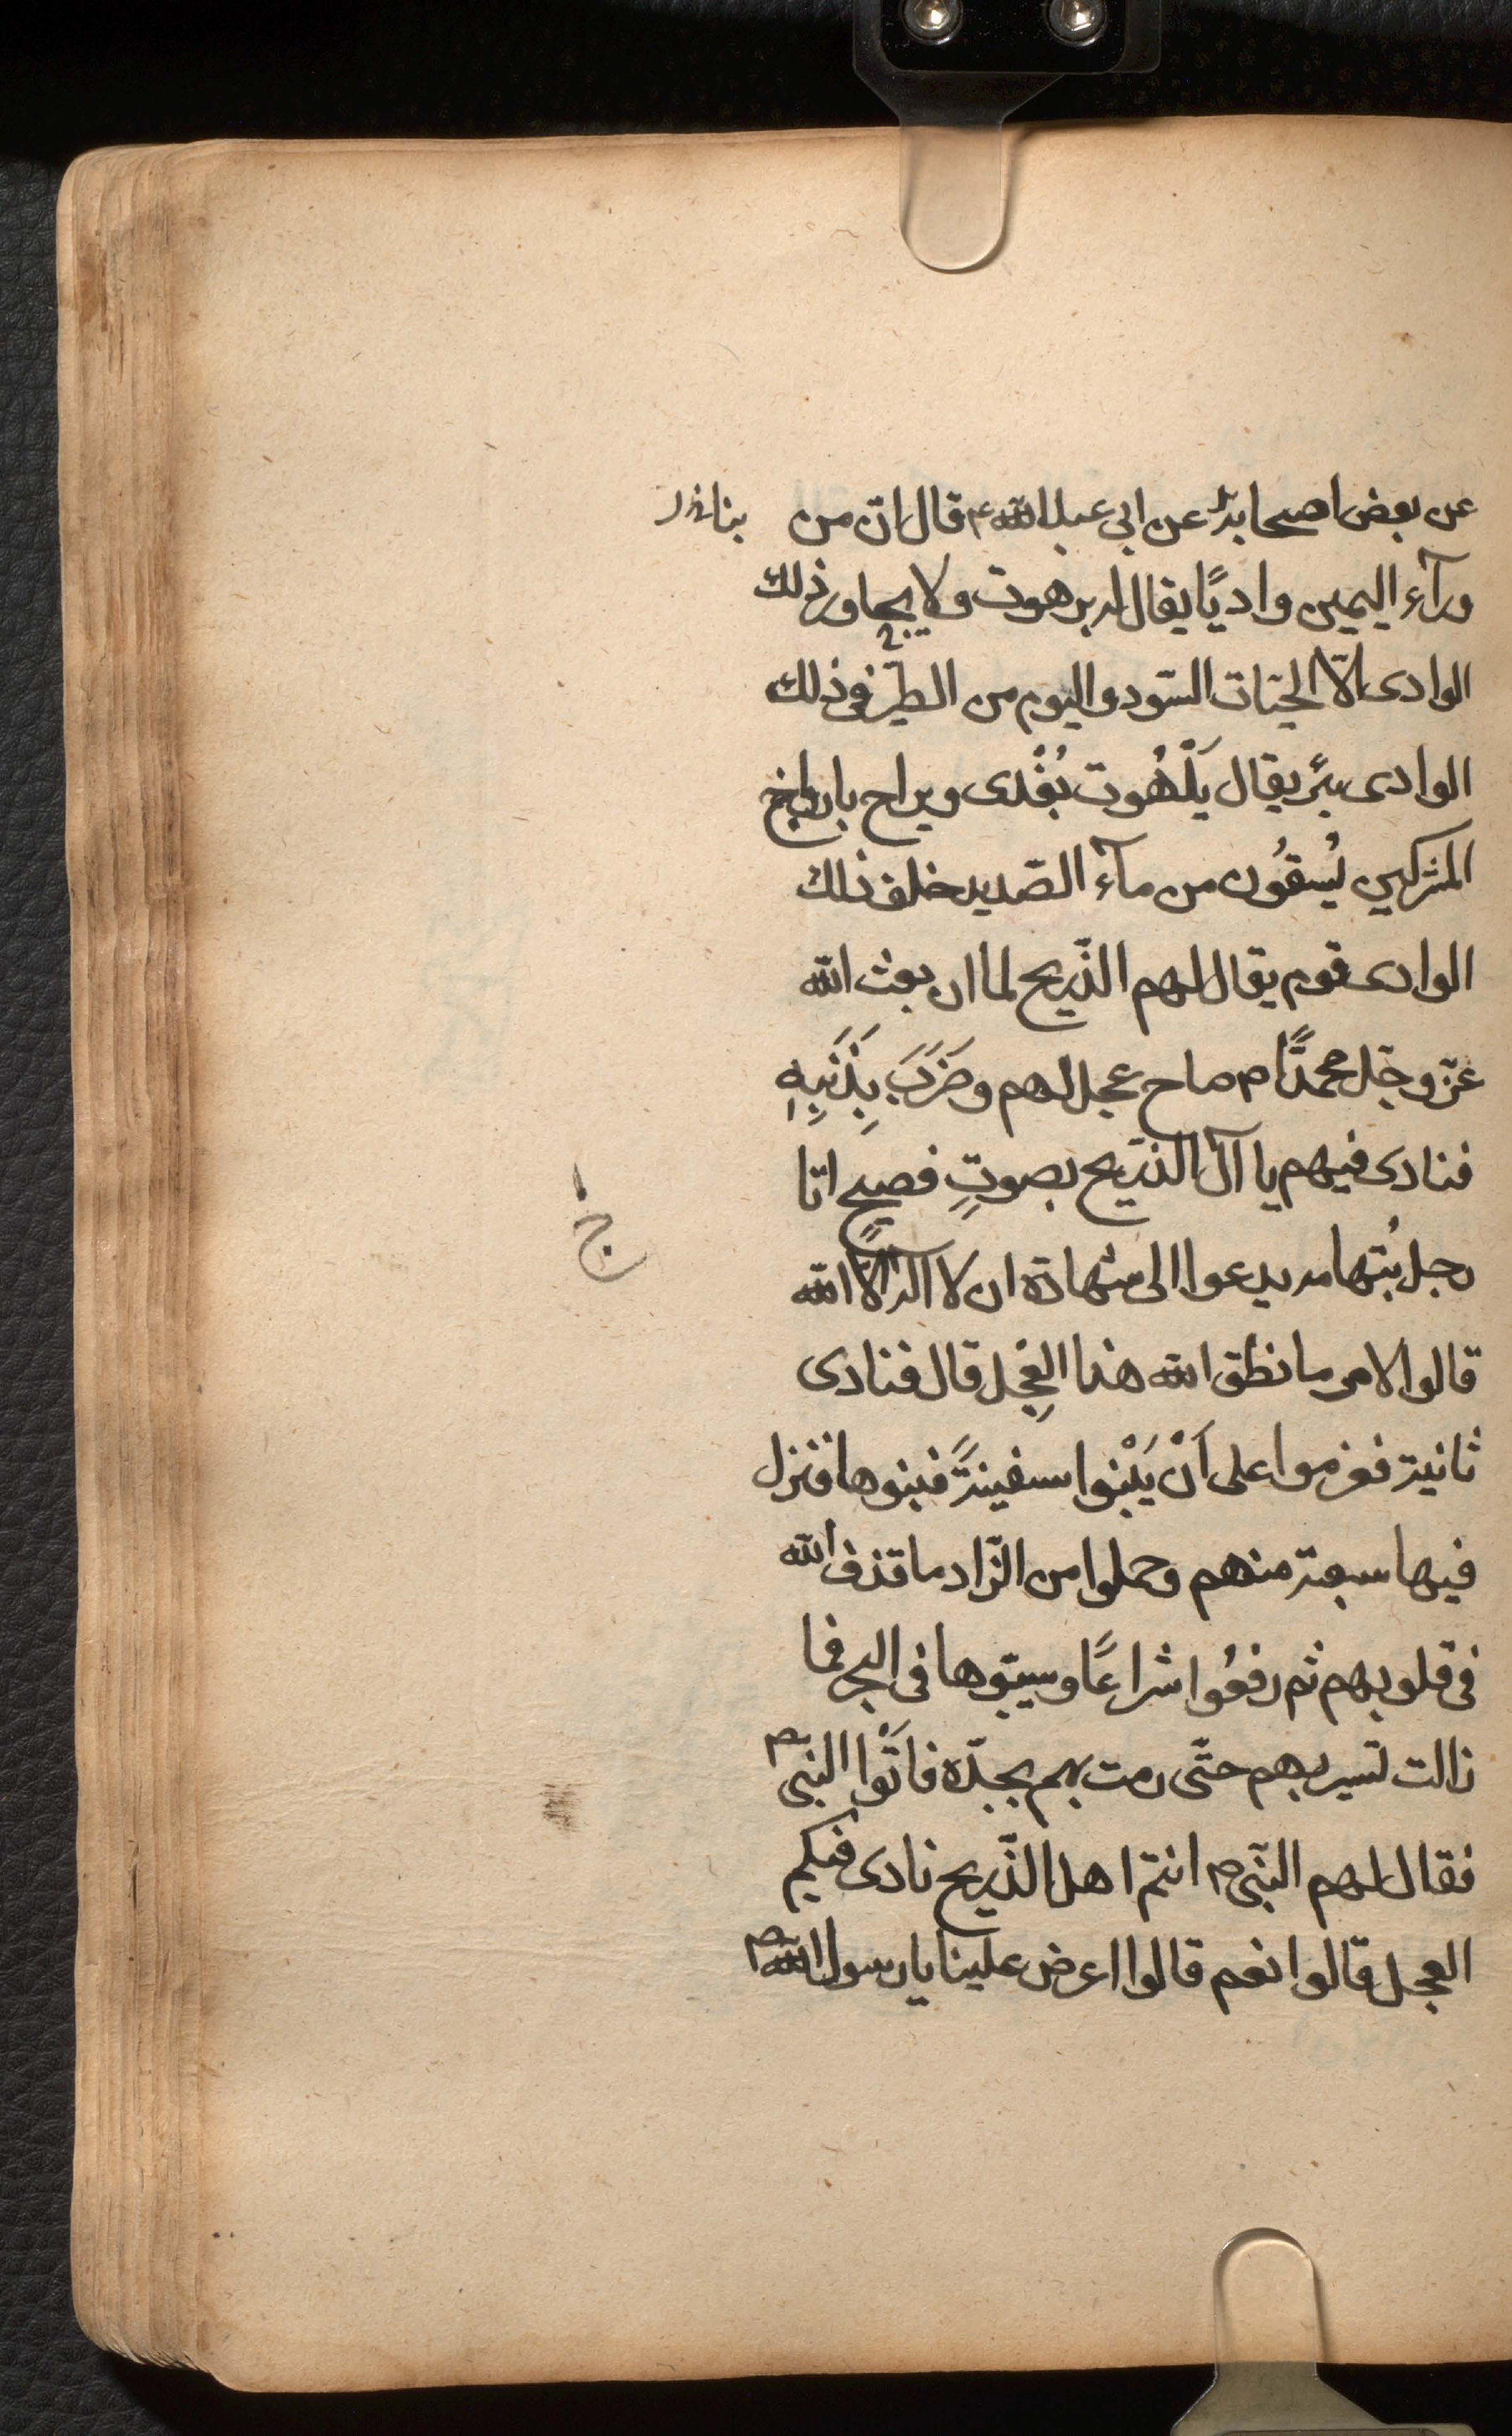 عن بعض اصحابه عن ابى عبد الله ع قال ان من
ورآء اليمين واديًا يقال له برهوت ولا يجاور ذلك
الوادى الّا الحيّات السّود و البوم من الطير فى ذلك
الوادى بئر يقال بَلْهُوت يُغْدى ويراح بارواح
المشركين يُسقُون من مآء الصّديد خلف ذلك
الوادى قوم يقال لهم الذّريح لما ان بعث الله
عزّ وجلّ محمدًا ص صاح عجل لهم وضَرَبَ بِذَنَبِهِ
فنادى فيهم يا آل الذريح بصوتٍ فصيحٍ اتا
رجل بُتهامه يدعوا الى شهادة ان لا اله الّا الله
قالوا لامر ما نطق الله هذا العِجْل قال فنادى
ثانية فعزموا على اَنْ يَبْنوا سفينةً فبنوها فنزل
فيها سبعة منهم وحملوا من الزّاد ما قذف الله
فى قلوبهم ثم رفعُوا شراعًا وسيبّوها فى البحر فما
زالت تسير بهم حتّى رمت بهم بجدّه فاَتَوْا النبّى ص
فقال لهم النبّى ص انتم اهل الذّريح نادى فيكم
العجل قالوا نعم قالوا اعرض علينا يا رسول الله ص
ج